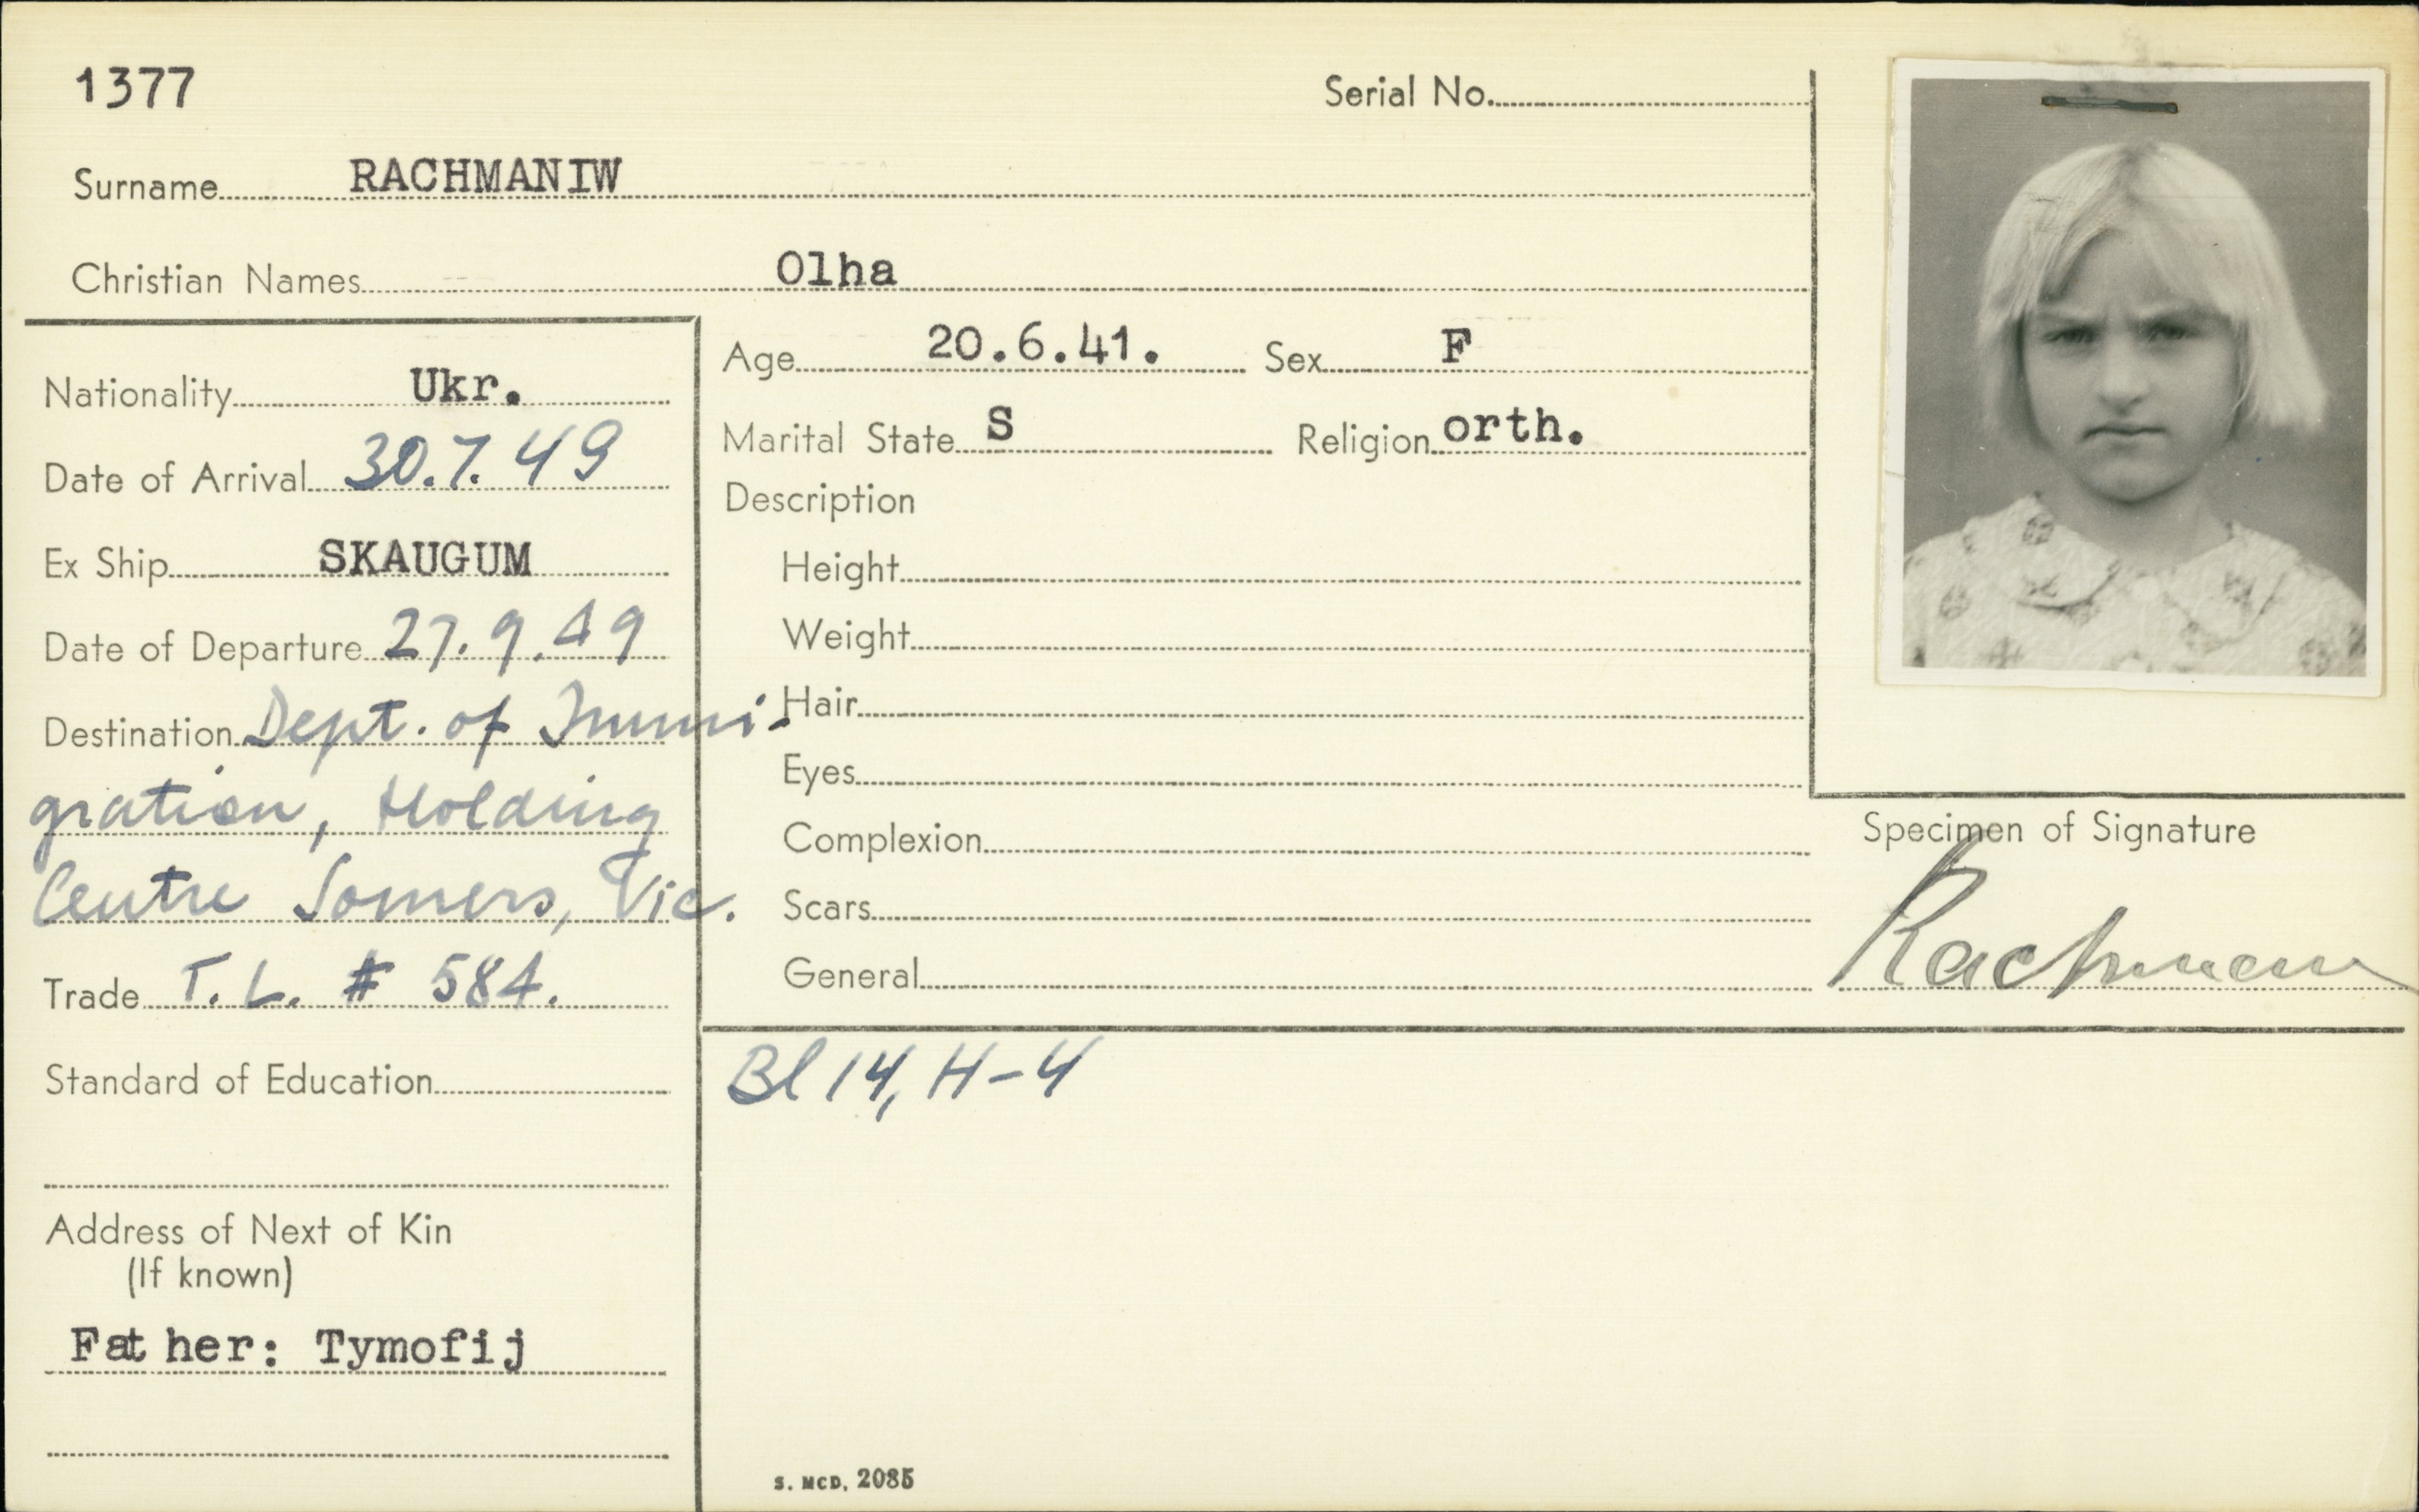 1377
Serial No.
Surname RACHMANIW
Christian Names Olha
Nationality Ukr.
Date of Arrival 30.7.49
Ex Ship SKAUGUM
Date of Departure 27.9.49
Destination Dept. of Immi-
gration, Holding
Centre Somers, Vic.
Trade T. L. # 584.
Standard of Education
Address of Next of Kin
(If known)
Father: Tymofij
Age 20.6.41. Sex F
Marital State S Religion orth.
Description
Height
Weight
Hair
Eyes
Complexion
Scars
General
Specimen of Signature
Bl 14, H-4
S. McD. 2085